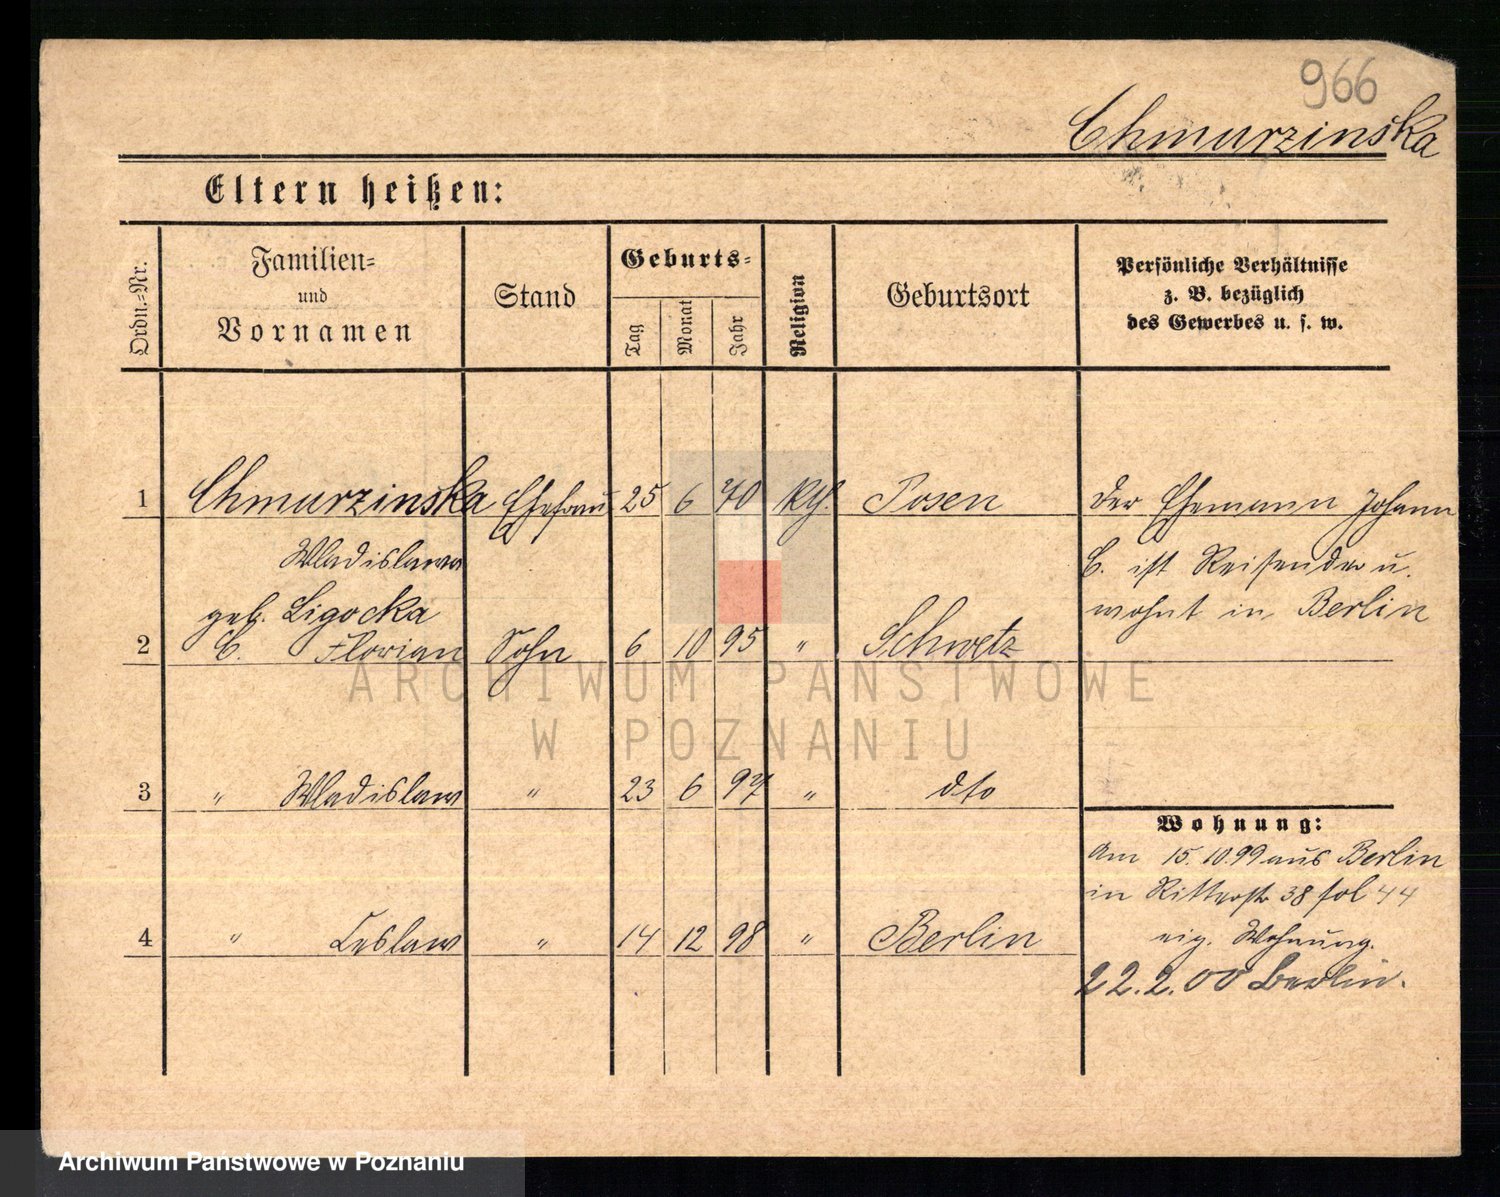 966
Chmurzinska
Eltern heißen:
Ordn.=Nr.
Familien=
und
Vornamen
Stand
Geburts=
Tag
Monat
Jahr
Religion
Geburtsort
Persönliche Verhältnisse
z. B. bezüglich
des Gewerbes u. s. w.
1 Chmurzinska Ehefrau 25 6 70 kth. Posen
Wladislawa
geb. Ligocka
der Ehemann Johann
C. ist Reisender u.
wohnt in Berlin
2 C. Florian Sohn 6 10 95 " Schwetz
3 " Wladislaw " 23 6 97 " dto
4 " Ceslaw " 14 12 98 " Berlin
Wohnung:
Am 15.10.99 aus Berlin
in Ritterstr 38 fol 44
eig. Wohnung.
22.2.00 Berlin.
ARCHIWUM PAŃSTWOWE
W POZNANIU
Archiwum Państwowe w Poznaniu